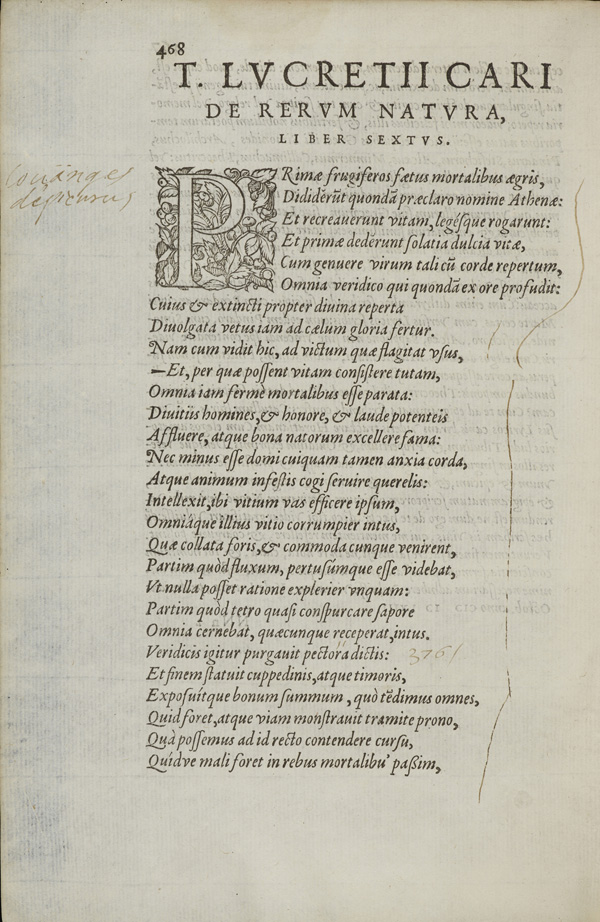 468
T. LVCRETII CARI
DE RERVM NATVRA,
LIBER SEXTVS.
Louanges
depicurus
PRimæ frugiferos fœtus mortalibus ægris,
Dididerũt quondã præclaro nomine Athenæ:
Et recreauerunt vitam, legésque rogarunt:
Et primæ dedérunt solatia dulcia vitæ,
Cum genuere virum tali cũ corde repertum,
Omnia veridico qui quondã ex ore profudit:
Cuius & extincti propter diuina reperta
Diuolgata vetus iam ad cælum gloria fertur.
Nam cum vidit hic, ad victum quæ flagitat vsus,
—Et, per quæ possent vitam consistere tutam,
Omnia iam fermè mortalibus esse parata:
Diuitiis homines, & honore, & laude potenteis
Affluere, atque bona natorum excellere fama:
Nec minus esse domi cuiquam tamen anxia corda,
Atque animum infestis cogi seruire querelis:
Intellexit, ibi vitium vas efficere ipsum,
Omniáque illius vitio corrumpier intus,
Quæ collata foris, & commoda cunque venirent,
Partim quòd fluxum, pertusúmque esse videbat,
Vt nulla posset ratione explerier vnquam:
Partim quòd tetro quasi conspurcare sapore
Omnia cernebat, quæcunque receperat, intus.
Veridicis igitur purgauit pectora dictis: 3761
Et finem statuit cuppedinis, atque timoris,
Exposuítque bonum summum, quò tẽdimus omnes,
Quid foret, atque viam monstrauit tramite prono,
Quà possemus ad id recto contendere cursu,
Quidve mali foret in rebus mortalibu' paßim,